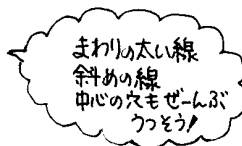 まわりの太い線
斜めの線
中心の穴もぜーんぶ
うつそう!